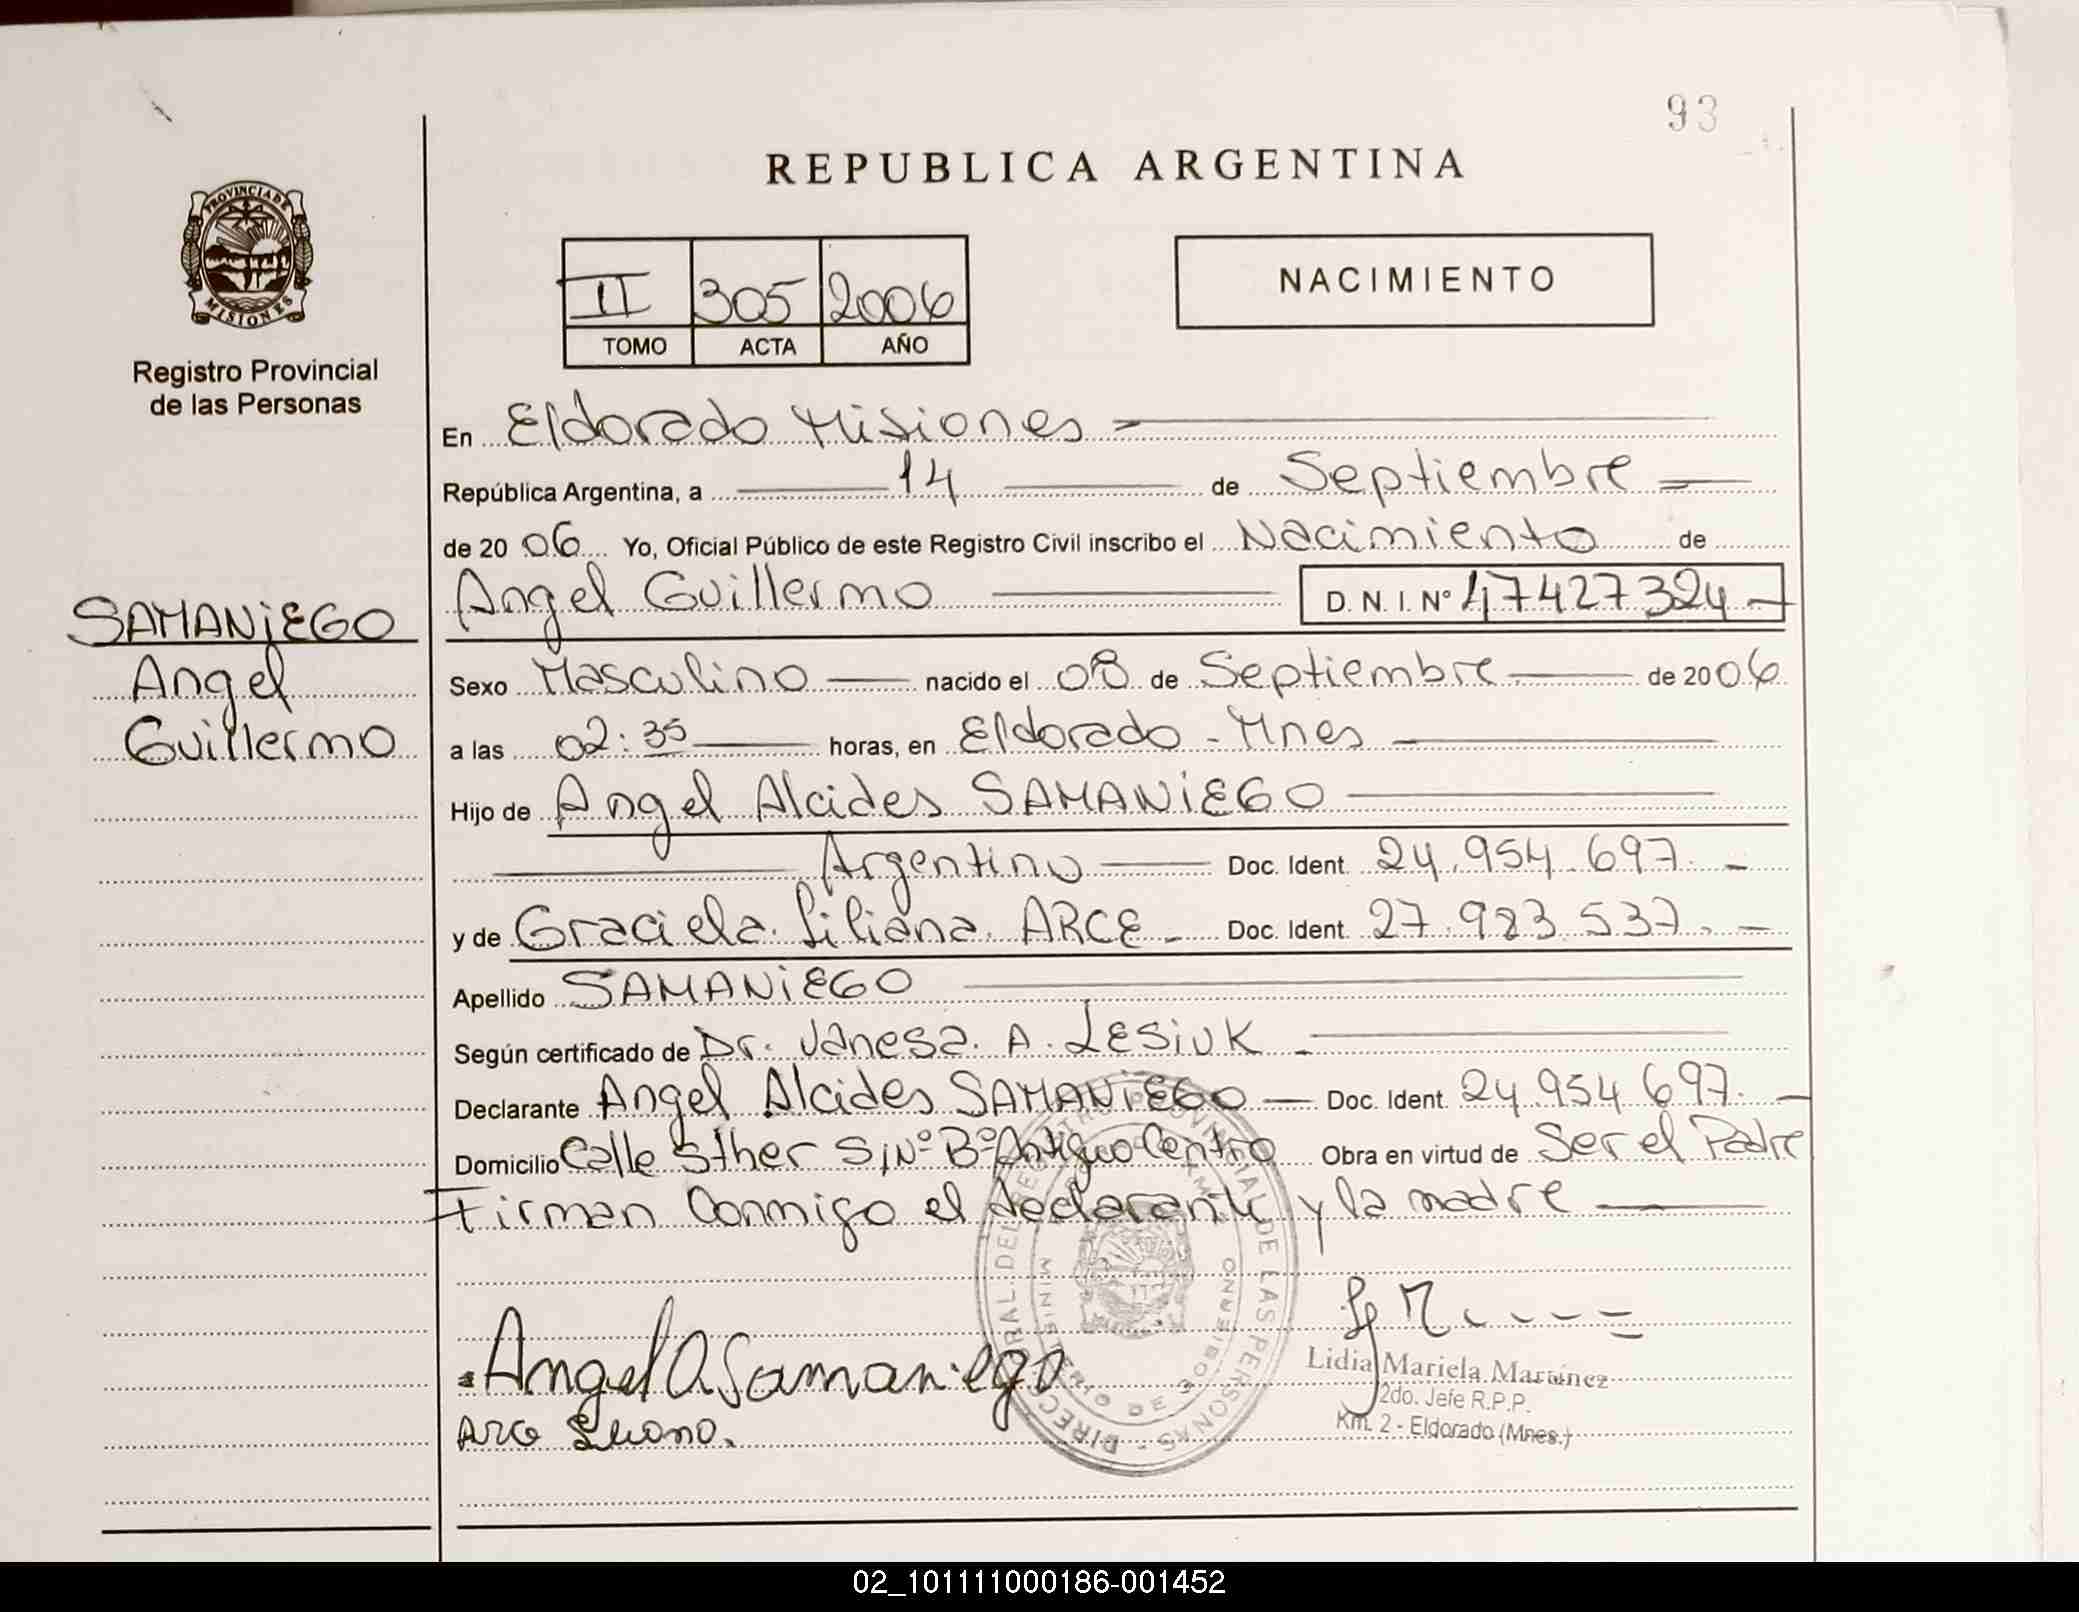 93
REPUBLICA ARGENTINA
PROVINCIA DE MISIONES
Registro Provincial
de las Personas
II 305 2006
TOMO ACTA AÑO
NACIMIENTO
En Eldorado Misiones
República Argentina, a 14 de Septiembre
de 2006 Yo, Oficial Público de este Registro Civil inscribo el Nacimiento de
Angel Guillermo D.N.I. Nº 47427324
SAMANiEGO
Angel
Guillermo
Sexo Masculino nacido el 08 de Septiembre de 2006
a las 02:35 horas, en Eldorado - Mnes
Hijo de Angel Alcides SAMANiEGO
Argentino Doc. Ident. 24.954.697.
y de Graciela Liliana ARCE Doc. Ident. 27.983.537.
Apellido SAMANiEGO
Según certificado de Dr. Vanesa A. LESiUK
Declarante Angel Alcides SAMANiEGO Doc. Ident. 24.954.697.
Domicilio Calle Sther S/Nº Bº Antiguo Centro Obra en virtud de Ser el Padre
Firman Conmigo el declarante y la madre
DIRECC GRAL. DEL REGISTRO PROVINCIAL DE LAS PERSONAS
MINISTERIO DE GOBIERNO
Angel A. Samaniego
Lidia Mariela Martinez
2do. Jefe R.P.P.
Km. 2 - Eldorado (Mnes.)
02_101111000186-001452